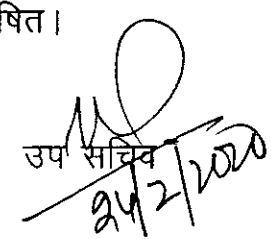 षित।
उप सचिव
24/2/2020